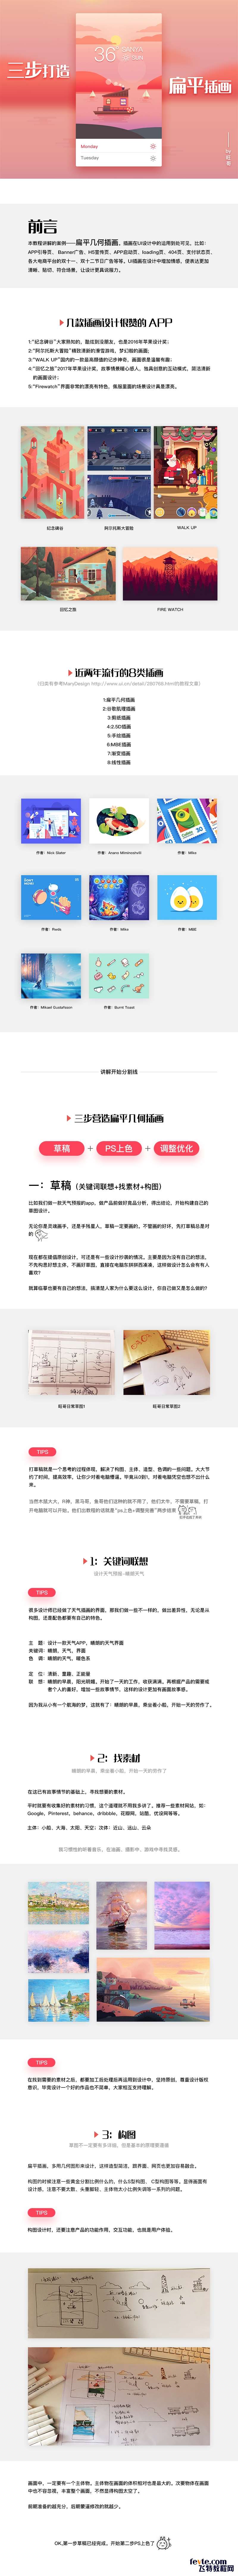 三步打造
扁平插画
36°
Monday
Tuesday
by
前言
本教程讲解的案例——扁平几何插画。插画在UI设计中的运用到处可见，比如：
APP引导页， Banner广告、H5宣传页、APP启动页、loading页、404页、支付状态页、
各大电商平台的双十一、双十二节日广告等等，UI插画在设计中增加情感，使表达更加
清晰、贴切、符合场景，让设计更具说服力。
几款插画设计很赞的 APP
1:“纪念碑谷”大家熟知的，登战到没朋友，也是2016年苹果设计奖；
2:“阿尔托斯大冒险”横划清新的滑雪游戏，梦幻般的画面；
3:“WALK UP”国内的一款最高颜值的记步神奇，画面很是温馨有趣；
4:“回忆之旅”2017年苹果设计奖，故事情景暖心感人，独具创意的互动模式，简洁清新
的画面设计；
5:“Firewatch”界面非常的漂亮有特色，焦服里面的场景设计真是漂亮。
纪念碑谷
阿尔托斯大冒险
WALK UP
回忆之旅
FIRE WATCH
近两年流行的8类插画
1:扁平几何插画
2:谷歌肌理插画
3:剪纸插画
4:2.5D插画
5:手绘插画
6:MBE插画
7:渐变插画
8:线性插画
作者：Nick Slater
作者：Mike
作者：Mike
作者：MBE
作者：Mikael Gustafsson
作者：Burnt Toast
讲解开始分割线
三步营造扁平几何插画
草稿 + PS上色 + 调整优化
一：草稿（关键词联想+找素材+构图）
比如我们做一款天气预报的app，做产品前做好竞品分析，得出结论，开始构建自己的
草图设计。
无论你是灵魂画手，还是手残星人，草稿一定要画的。不管画的好坏，先打草稿总是对
的
现在都在建倡原创设计，可还是有一些设计抄袭的情况。主要是因为没有自己的想法，
不先构思好想主体，不画好草图，直接在电脑东拼拼西凑凑，这样做设计怎么会有有人
喜欢？
就算临摹也要有自己的想法，搞清楚人家为什么要这么设计，你自己做又是怎么做的？
TIPS
打草稿就是一个思考的过程体现，解决了构图、主体、造型、色调的一些问题，大大节
约了时间，提高效率，让你少对着电脑懵逼。毕竟从0到1，对着电脑凭空也想不出什么
来。
1：关键词联想
设计天气预报-晴朗天气
TIPS
很多设计师已经做了天气插画的界面，那我们做一些不一样的，做出差异性，无论是从
构图，还是配色都要有自己的特色。
主 题：设计一款天气APP，晴朗的天气界面
关键词：晴朗、天气、界面
色 调：晴朗的天气，暖色系
定 位：清新、童趣、正能量
联 想：晴朗的早晨，阳光明媚，开始了一天的工作，收获满满，再根据产品的需要或
老个人的喜好，增加一些故事情节，这样的设计更加有画面故事感。
因为我从小有一个航海的梦，这就有了：晴朗的早晨，乘坐着小船，开始一天的劳作了。
2：找素材
晴朗的早晨，乘坐着小船，开始一天的劳作了
在这已有故事情节的基础上，寻找想要的素材。
平时就要有收集好的素材的习惯，这个道理就不用我多讲了，推荐一些素材网站，如：
Google、Pinterest、behance、dribbble、花瓣网、站酷、优设网等等。
主体：小船、大海、太阳、天空；次体：近山、远山、云朵
我习惯性的听着音乐，在油画、摄影中、游戏中寻找灵感。
TIPS
在找到需要的素材之后，都要加工后处理后再运用到设计中，坚持原创，尊重设计版权
意识，毕竟设计一个好的作品也不简单，大家相互支持理解。
3：构图
草图不一定要有多详细，但是基本的原理要遵循
扁平插画，多用几何图形来设计，这样造型简洁，跨界面、网页也更加容易融合。
构图的时候注意一些黄金分割比例什么的，什么S型构图、C型构图等等。显得画面有
设计感。注意不要太散、头重脚轻、主体物太小比例失调等一系列的问题。
TIPS
构图设计时，还要注意产品的功能作用，交互功能，也就是用户体验。
画面中，一定要有一个主体物。主体物在画面的体积相对也是最大的。次要物体在画面
中也不容忽视，丰富整个画面，不然显得构图太空了。
前期准备的越充分，后期要返修改的就越少。
OK,第一步草稿已经完成。开始第二步PS上色了
fevte.com
飞特教程网